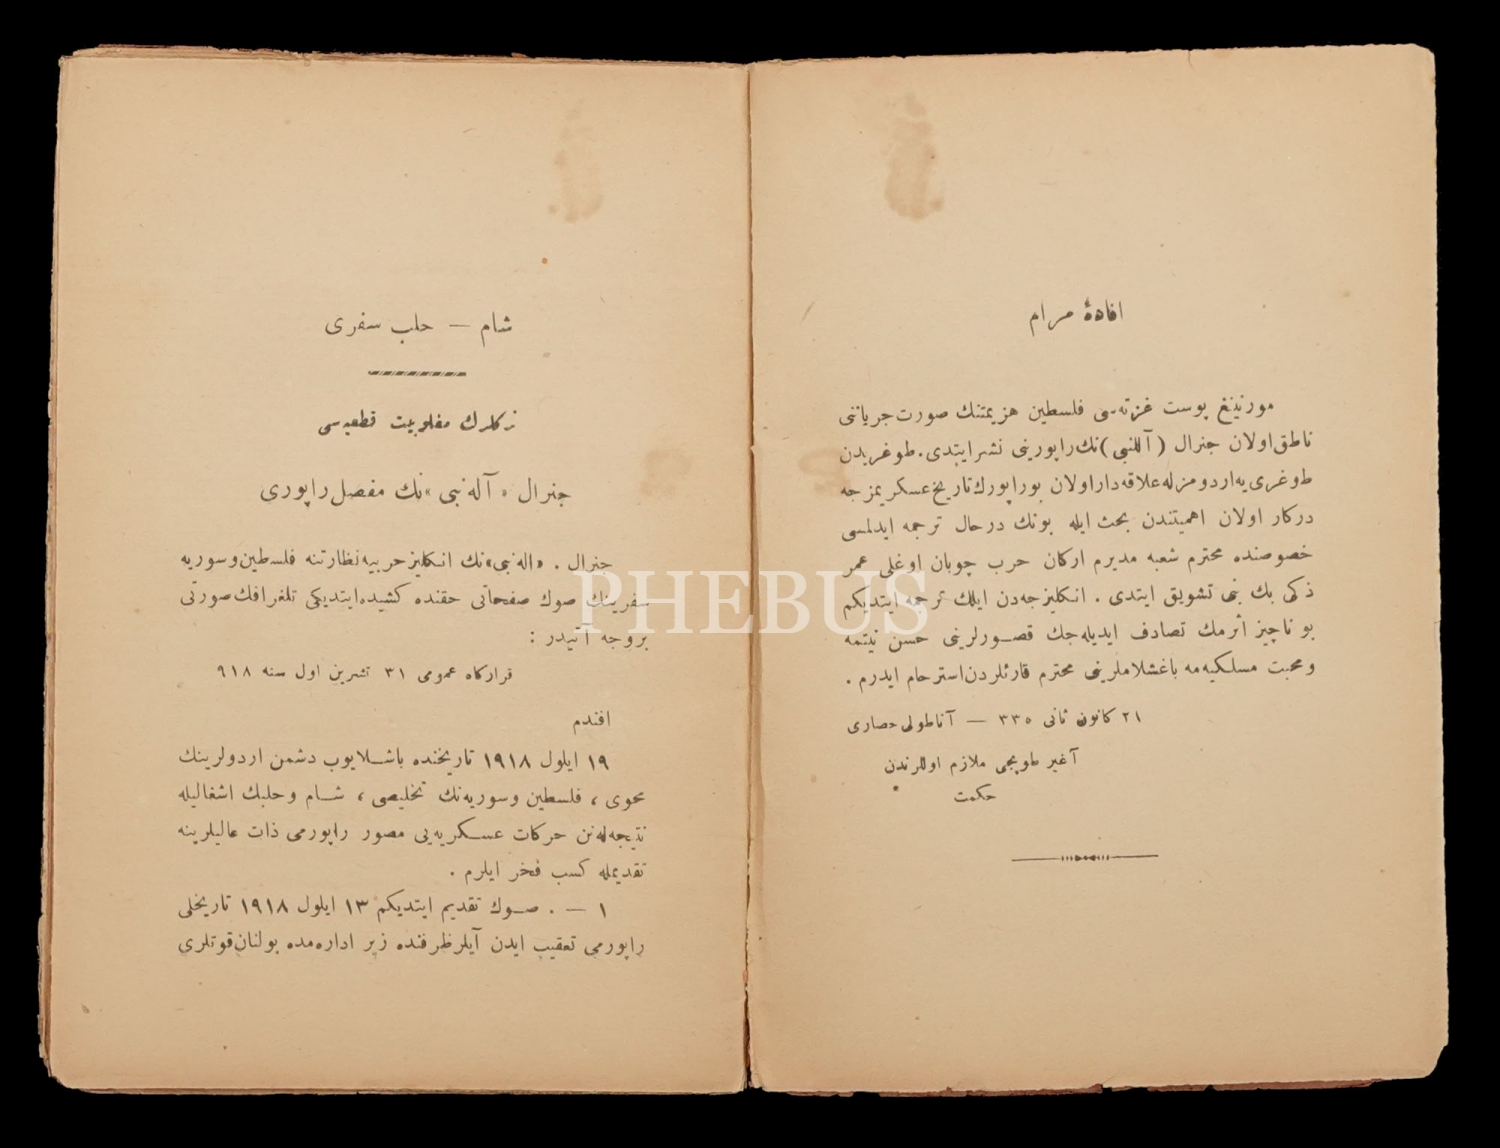 افادهٔ مرام
مورنینغ پوست غزته‌سی فلسطین هزیمتنك صورت جریاننی
ناطق اولان جنرال (آللنبی) نك راپورینی نشر ایتدی. طوغریدن
طوغری‌یه اردومزله علاقه‌دار اولان بوراپورك تاریخ عسکریمزجه
درکار اولان اهمیتندن بحث ایله بونك درحال ترجمه ایدلمسی
خصوصنده محترم شعبه مدیرم ارکان حرب چوبان اوغلی عمر
ذکی بك بنی تشویق ایتدی . انکلیزجه‌دن ایلك ترجمه ایتدیکم
بو ناچیز اثرمك تصادف ایدیله‌جك قصورلرینی حسن نیتمه
ومحبت مسلکیه‌مه باغشلاملرینی محترم قارئلردن استرحام ایدرم .
٢١ کانون ثانی ٣٣٥ — آناطولی حصاری
آغیر طوپجی ملازم اوللرندن
حکمت
شام — حلب سفری
ترکلرك مغلوبیت قطعیه‌سی
جنرال « آله‌نبی » نك مفصل راپوری
جنرال . «اله‌نبی» نك انکلیز حربیه نظارتنه فلسطین وسوریه
سفرینك صوك صفحاتی حقنده کشیده ایتدیکی تلغرافك صورتی
بروجه آتیدر :
قرارکاه عمومی ٣١ تشرین اول سنه ٩١٨
افندم
١٩ ایلول ١٩١٨ تاریخنده باشلایوب دشمن اردولرینك
محوی ، فلسطین وسوریه‌نك تخلیصی ، شام وحلبك اشغالیله
نتیجه‌له‌نن حرکات عسکریه‌یی مصور راپورمی ذات عالیلرینه
تقدیمله کسب فخر ایلرم .
١ — . صوك تقدیم ایتدیکم ١٣ ایلول ١٩١٨ تاریخلی
راپورمی تعقیب ایدن آیلر ظرفنده زیر اداره‌مده بولنان قوتلری
PHEBUS